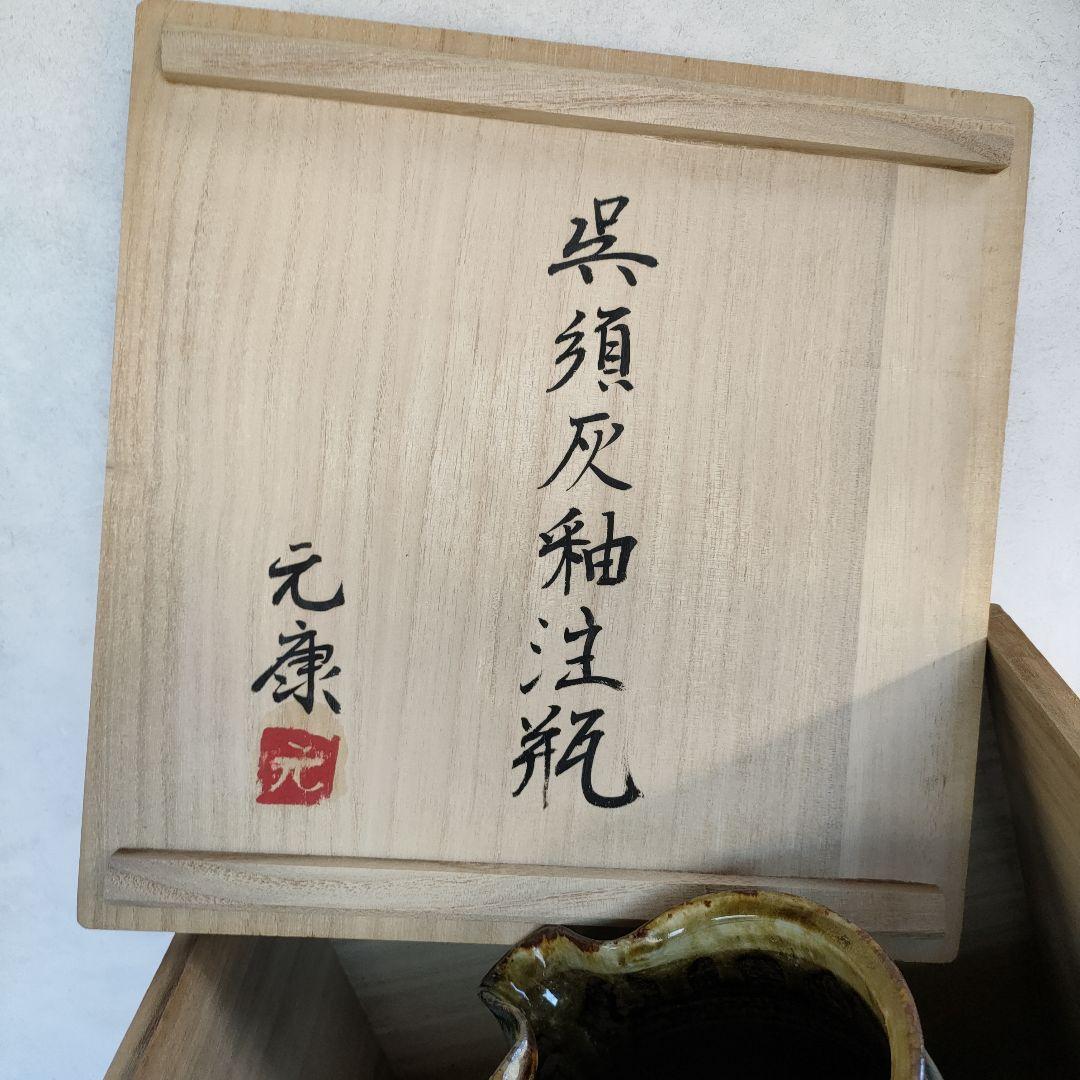 呉須灰釉注瓶
元康
元